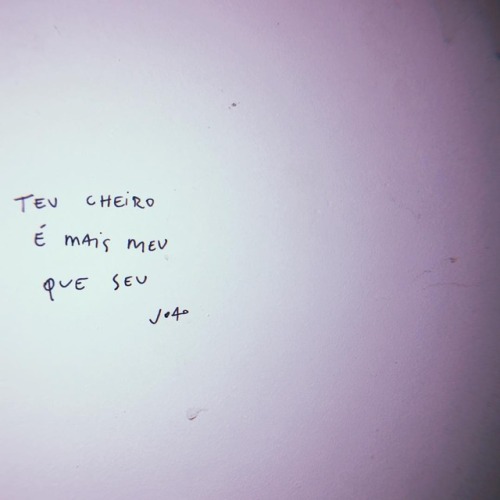 TEU CHEIRO
É MAIS MEU
QUE SEU
JOAO